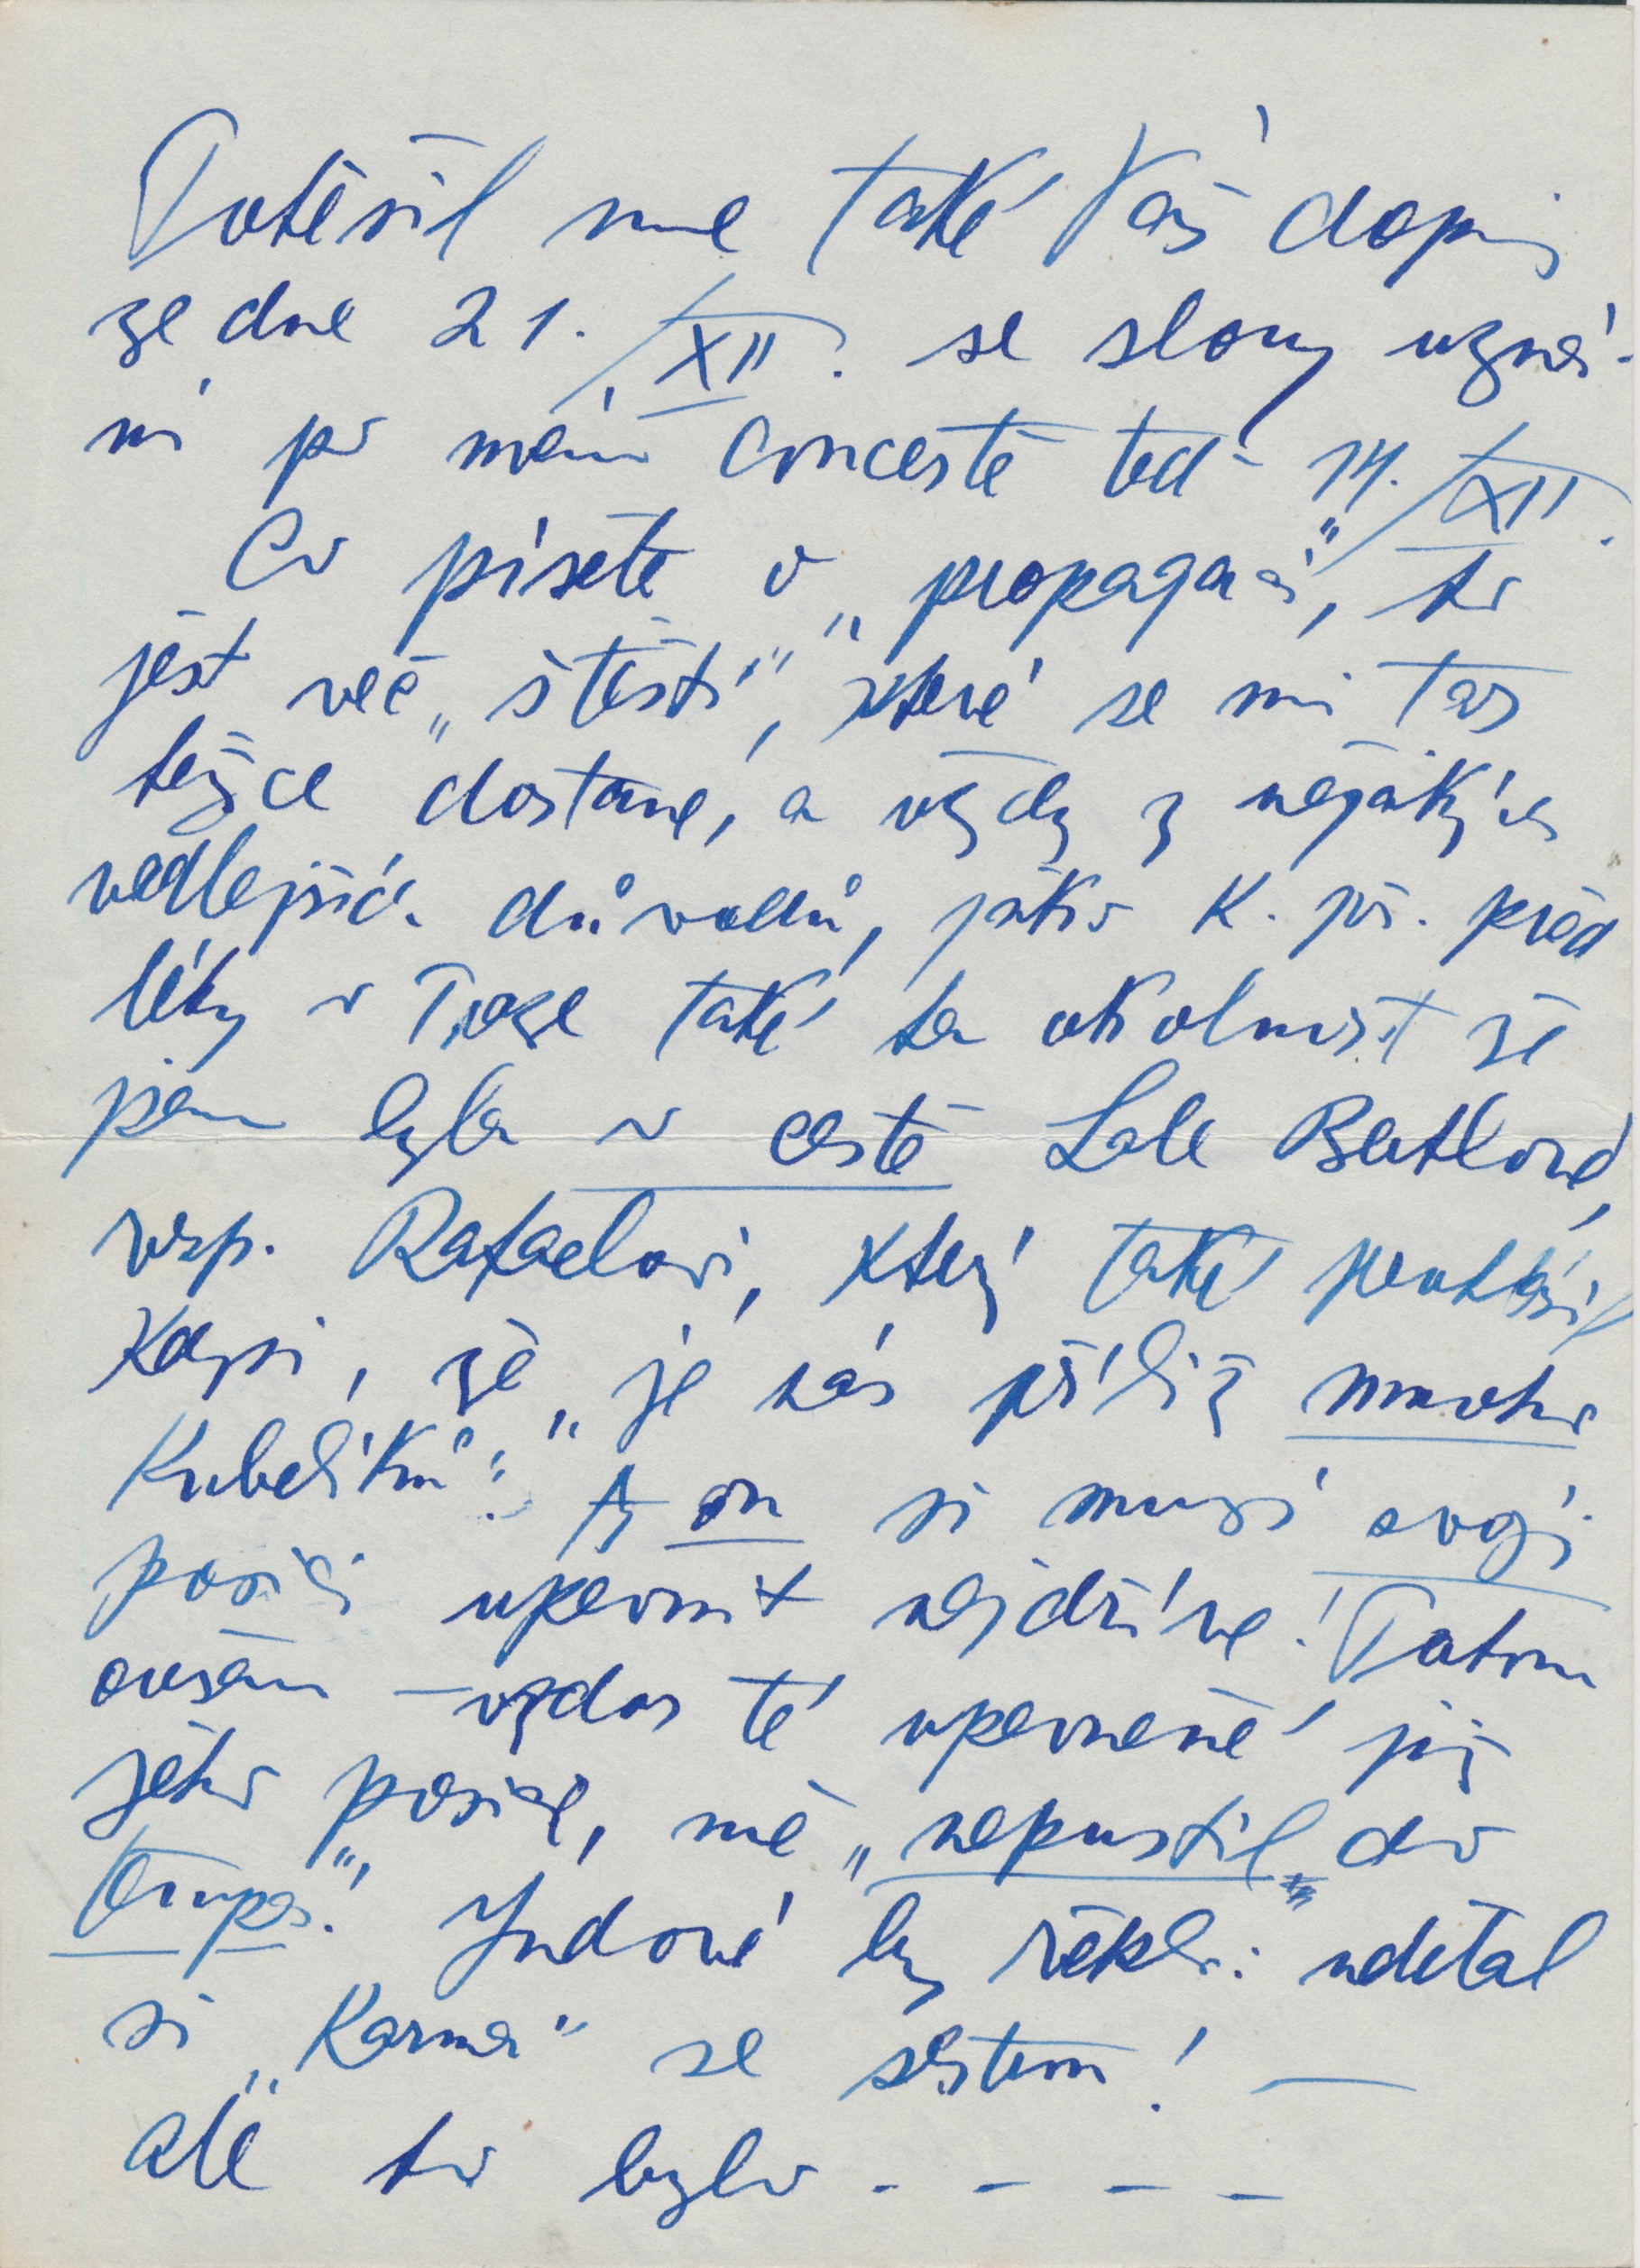 Potěšil mne také Váš dopis
ze dne 21./XII. se slovy uzná-
ní po mém Concertě teď 14./XII.
Co píšete o „propagaci", to
jest věc „štěstí", které se mi tak
težce dostane, a vždy z nějakých
vedlejších důvodů, jako k. př. před
léty v Praze také ta okolnost že
jsem byla v cestě Lale Bertlové,
resp. Rafaelovi, který také
kdysi, že „je nás příliš mnoho
Kubelíků". A on si musí svoji
posici upevnit nejdříve! Potom
ovšem – vzdor té upevněné již
jeho posice, mě „nepustil" do
Indové by řekli: udělal
si „Karma" se sestrou! —
ale to bylo - - - -